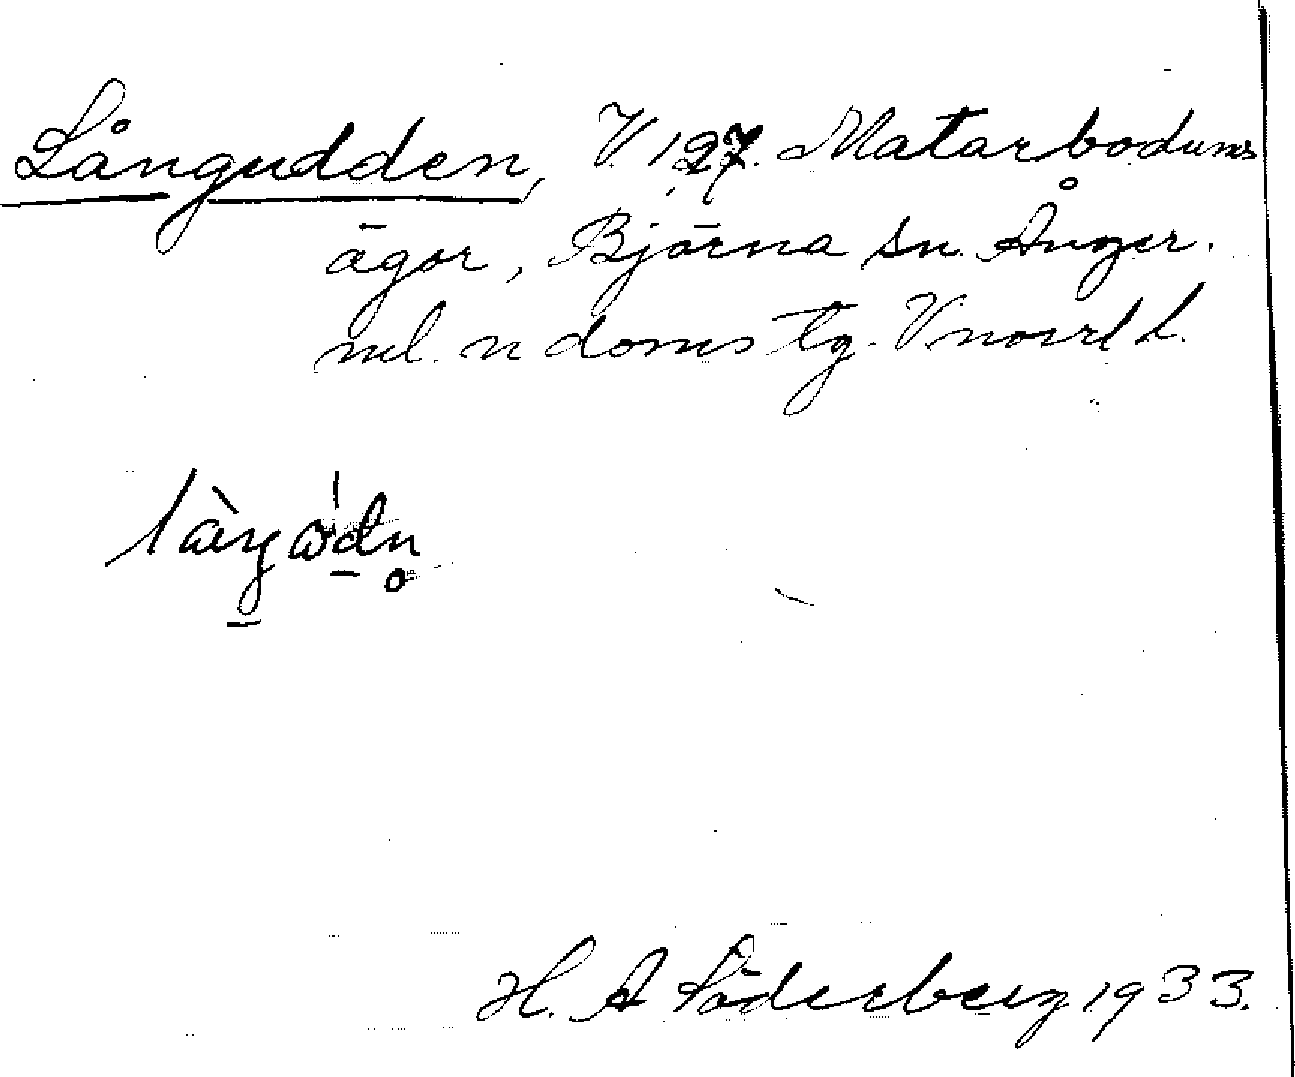 Långudden, V 127. Matarbodums
ägor, Björna sn. Ånger.
mel. n doms tg. Vnorrl L.
H. A Söderberg 1933.